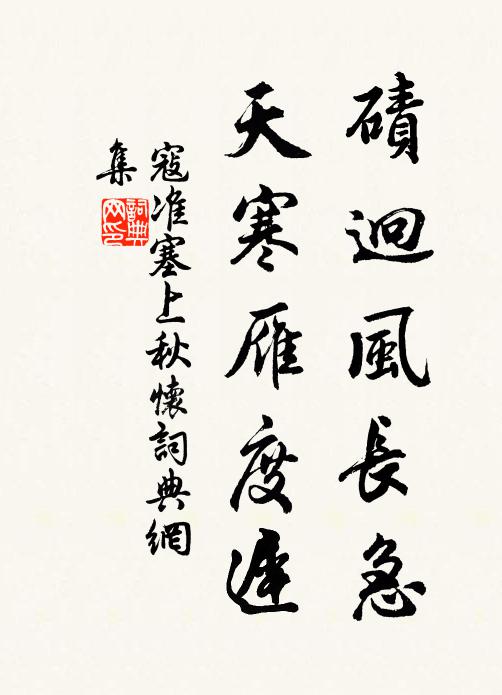 磧迥風長急
天寒雁度遲
寇准塞上秋懷詞典網
集
詞典
网印